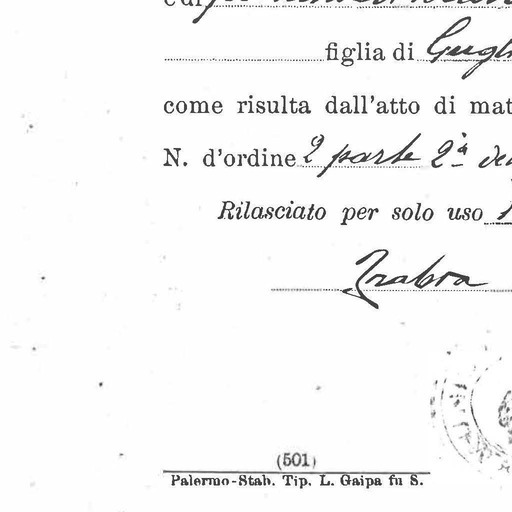 e di
figlia di Gugl
come risulta dall'atto di mat
N. d'ordine 2 parte 2ª
Rilasciato per solo uso
Trabia
(501)
Palermo-Stab. Tip. L. Gaipa fu S.